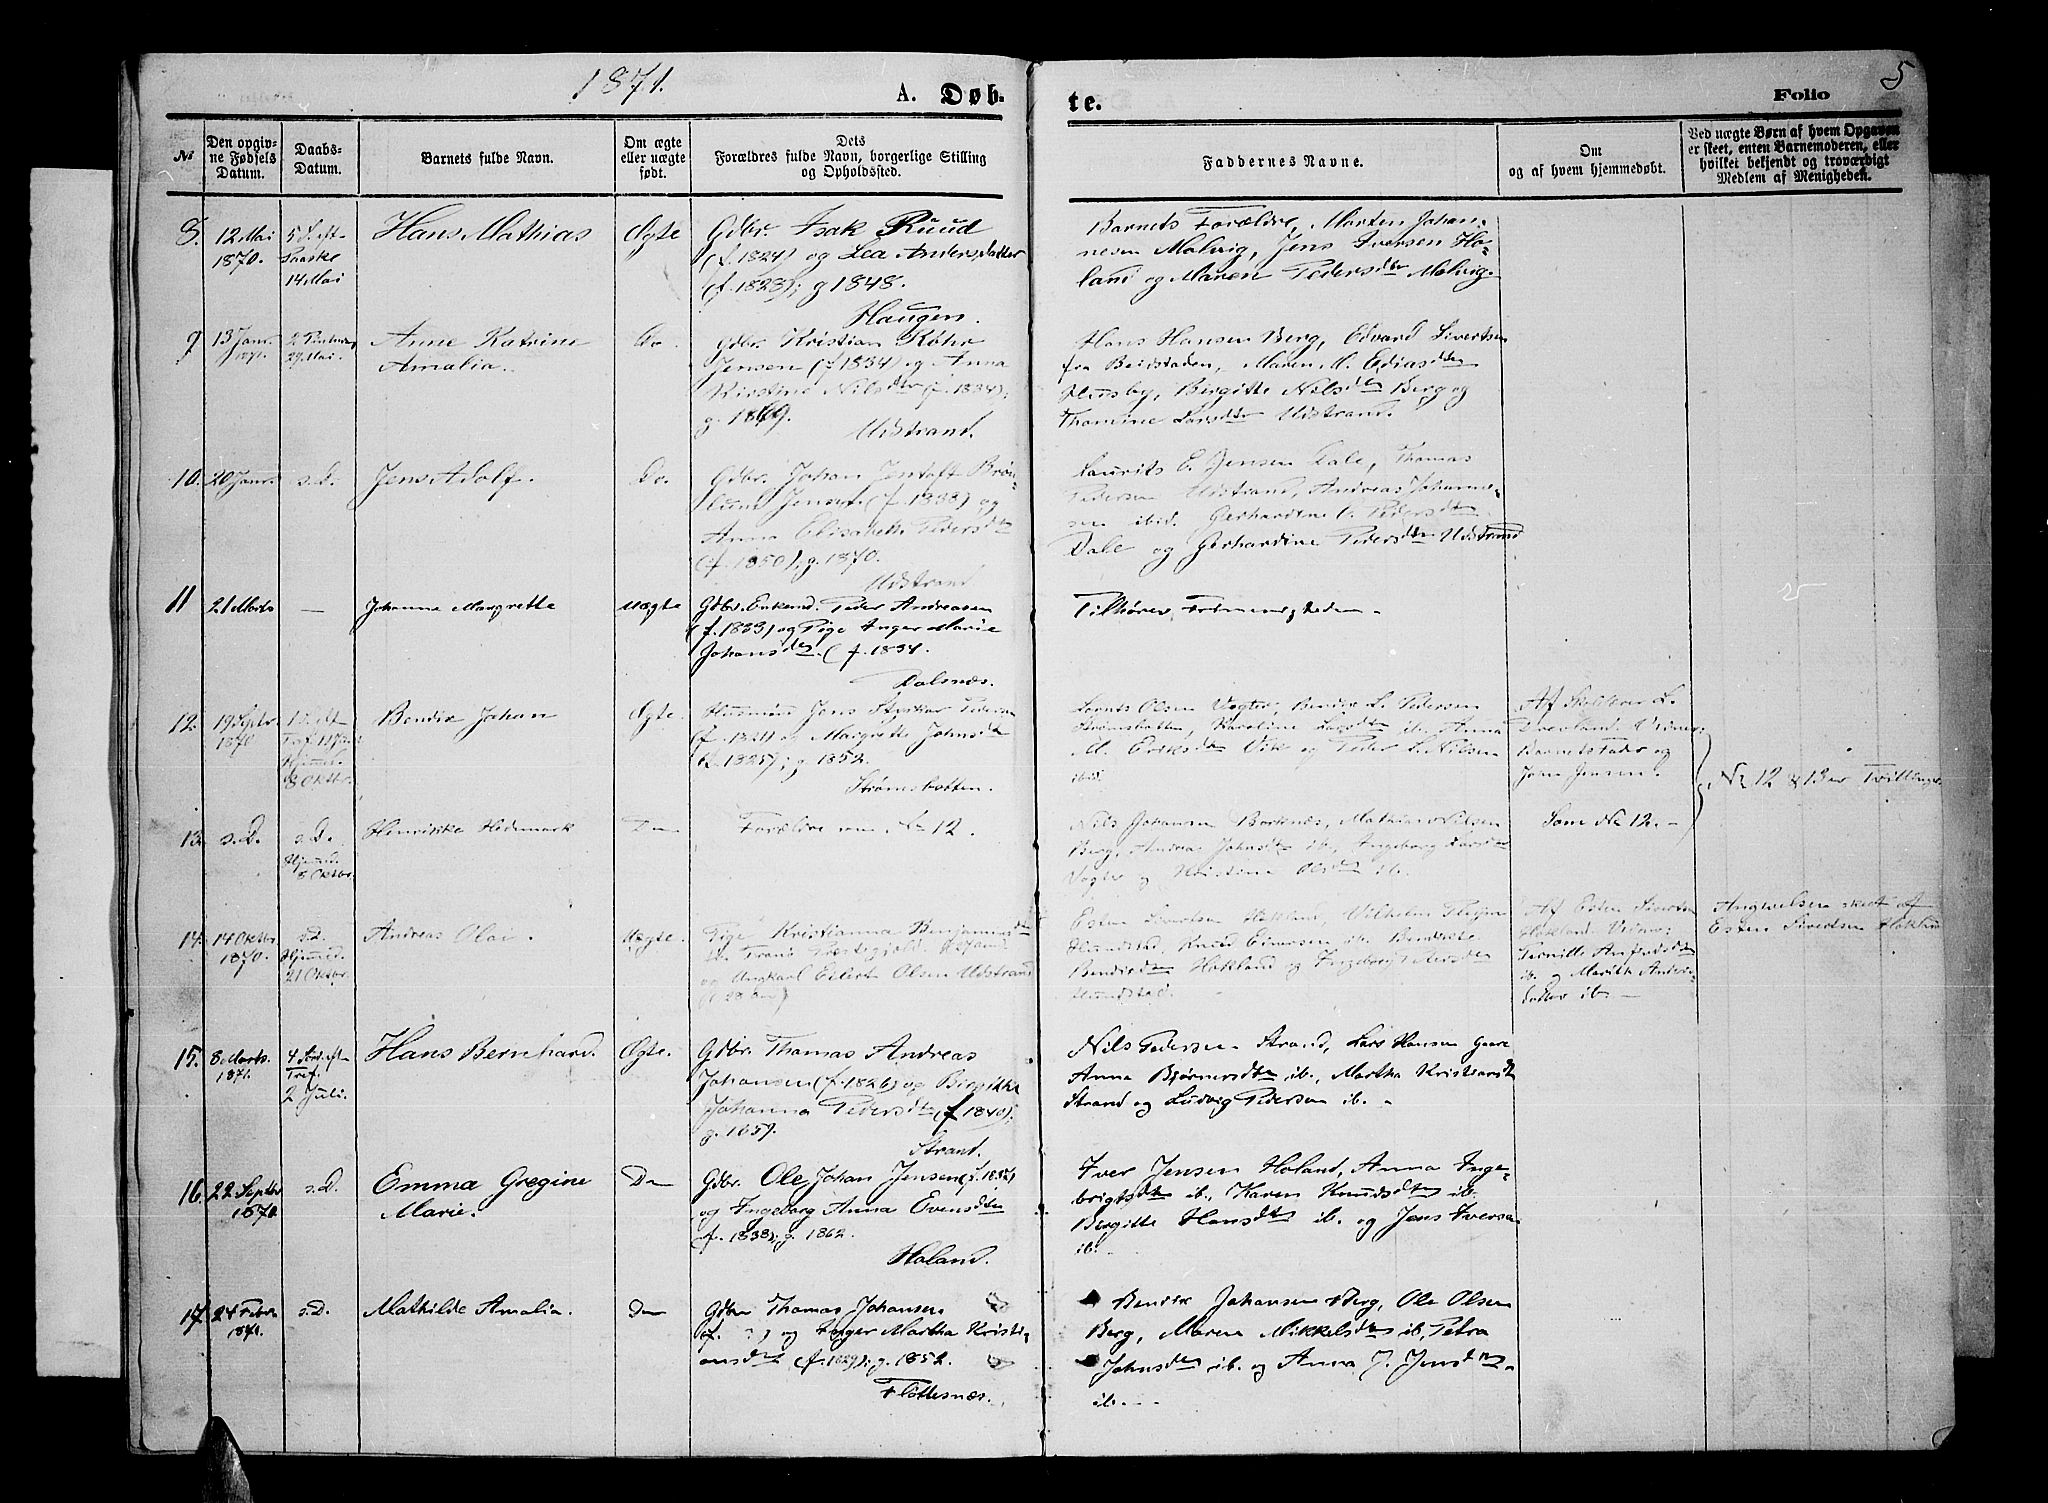 1871.
A. Døb-
te.
Folio
5
№
Den opgiv-
ne Fødsels
Datum.
Daabs-
Datum.
Barnets fulde Navn.
Om ægte
eller uægte
født.
Dets
Forældres fulde Navn, borgerlige Stilling
og Opholdssted.
Faddernes Navne.
Om
og af hvem hjemmedøbt.
Ved uægte Børn af hvem Opgaven
er skeet, enten Barnemoderen, eller
hvilket bekjendt og troværdigt
Medlem af Menigheden.
8.
12 Mai
1870.
5 S. eft
Paaske
14 Mai
Hans Mathias
Ægte
Gdbr. Isak Ruud
(f. 1824) og Lea Andersdatter
(f. 1823); g 1848.
Haugen.
Barnets Forældre, Morten Johan-
nesen Malvig, Jens Iversen Ho-
land og Maren Pedersdtr Malvig.
9
13 Janr.
1871.
29 Mai.
Anne Katrine
Amalia.
Do.
Gdbr. Kristian Røhr
Jensen (f. 1834) og Anna
Kirstine Nilsdtr (f. 1834);
g. 1869.
Udstrand.
Hans Hansen Berg, Edvard Sivertsen
fra Beidstaden, Maren M. Ediasdtr
Husby, Birgitte Nilsdtr Berg og
Thomine Larsdtr Udstrand.
10.
20 Janr.
s.D.
Jens Adolf.
Do.
Gdbr. Johan Jentoft Brøn-
lund Jensen (f. 1838) og
Anna Elisabeth Pedersdtr
(f. 1850); g. 1870.
Udstrand
Laurits E. Jensen Dale, Thomas
Pedersen Udstrand, Andreas Johanne-
sen ibid. Gerhardine Pedersdtr
Dale og Gerhardine Pedersdtr Udstrand
11
21 Marts
—
Johanna Margrette
Uægte
Gdbr. Enkemd. Peder Andreasen
(f. 1833) og Pige Inger Marie
Johansdtr. (f. 1834.
Dalsnæs.
Tilhører Frimenigheden.
25
12.
19 Septbr
1870
Hjemmed.
8 Oktbr.
Bendix Johan
Ægte.
Husmand Jens Styrkar Pedersen
(f. 1824) og Margrethe Johnsdtr
(f. 1825); g. 1852.
Strømsbotten.
Lornts Olsen Vogter, Bendix L. Pedersen
Strømsbotten, Karoline Larsdtr ib. Anna
M. Eriksdtr Vik og Peder L. Nilsen
ibid.
Af Skolelærer L.
Dverland. Vidner:
Barnets Fader og
Jens Jensen.
№ 12 & 13 er Tvillinger.
13.
s.D.
s.D.
Hjemmed.
8 Oktbr.
Henrikke Hedemark
Do
Forældre som № 12.
Nils Johansen Borknæs, Mathias Nilsen
Berg, Andrea Johnsdtr ib. Ingeborg Larsdtr
Vogter og Kristine Olsdtr ib.
Som № 12.-
14.
14 Oktbr.
1870.
s.D.
Hjemmed.
21 Oktbr.
Andreas Olai.
Uægte.
Pige Kristianna Benjaminsdtr
og Ungkarl Edert Olsen Udstrand
(f. 28 Aar)
Esten Sivertsen Hokland, Vilhelm
Hundstad, Knud Einersen ib. Bendikte
Bendixdtr Hokland og Ingeborg Pedersdtr
Hundstad.
Af Esten Sivertsen
Hokland. Vidner:
Pernille Amfindsdtr
ib. og Marith Anders-
datter ib. —
Angivelsen skedt af
Esten Sivertsen Hokland
15.
8 Marts.
1871.
4 Snd. eft
Tref.
2 Juli.
Hans Bernhard.
Ægte.
Gdbr. Thomas Andreas
Johansen (f. 1826) og Birgitte
Johanna Pedersdtr (f 1840);
g. 1857.
Strand.
Nils Pedersen Strand, Lars Hansen Gaare
Anna Bjørnersdtr ib., Martha Kristiansdtr
Strand og Ludvig Pedersen ib.
16.
22 Septbr
1870
s.D.
Emma Gregine
Marie.
Do
Gdbr. Ole Johan Jensen (f. 1837)
og Ingeborg Anna Evensdtr
(f. 1838); g. 1862.
Holand.
Iver Jensen Holand, Anna Inge-
brigtsdtr ib., Karen Knudsdtr ib.
Bergitte Hansdtr ib. og Jens Iversen
ib.
17.
24 Febr.
1871.
s.D.
Mathilde Amalia.
Do
Gdbr Thomas Johansen
(f. ) og Inger Martha Kristi-
ansdtr (f. 1829); g. 1852.
Flottesnæs.
Bendix Johansen Berg, Ole Olsen
Berg, Maren Mikkelsdtr ib, Petra
Johnsdtr ib. og Anna J. Jensdtr
ib.